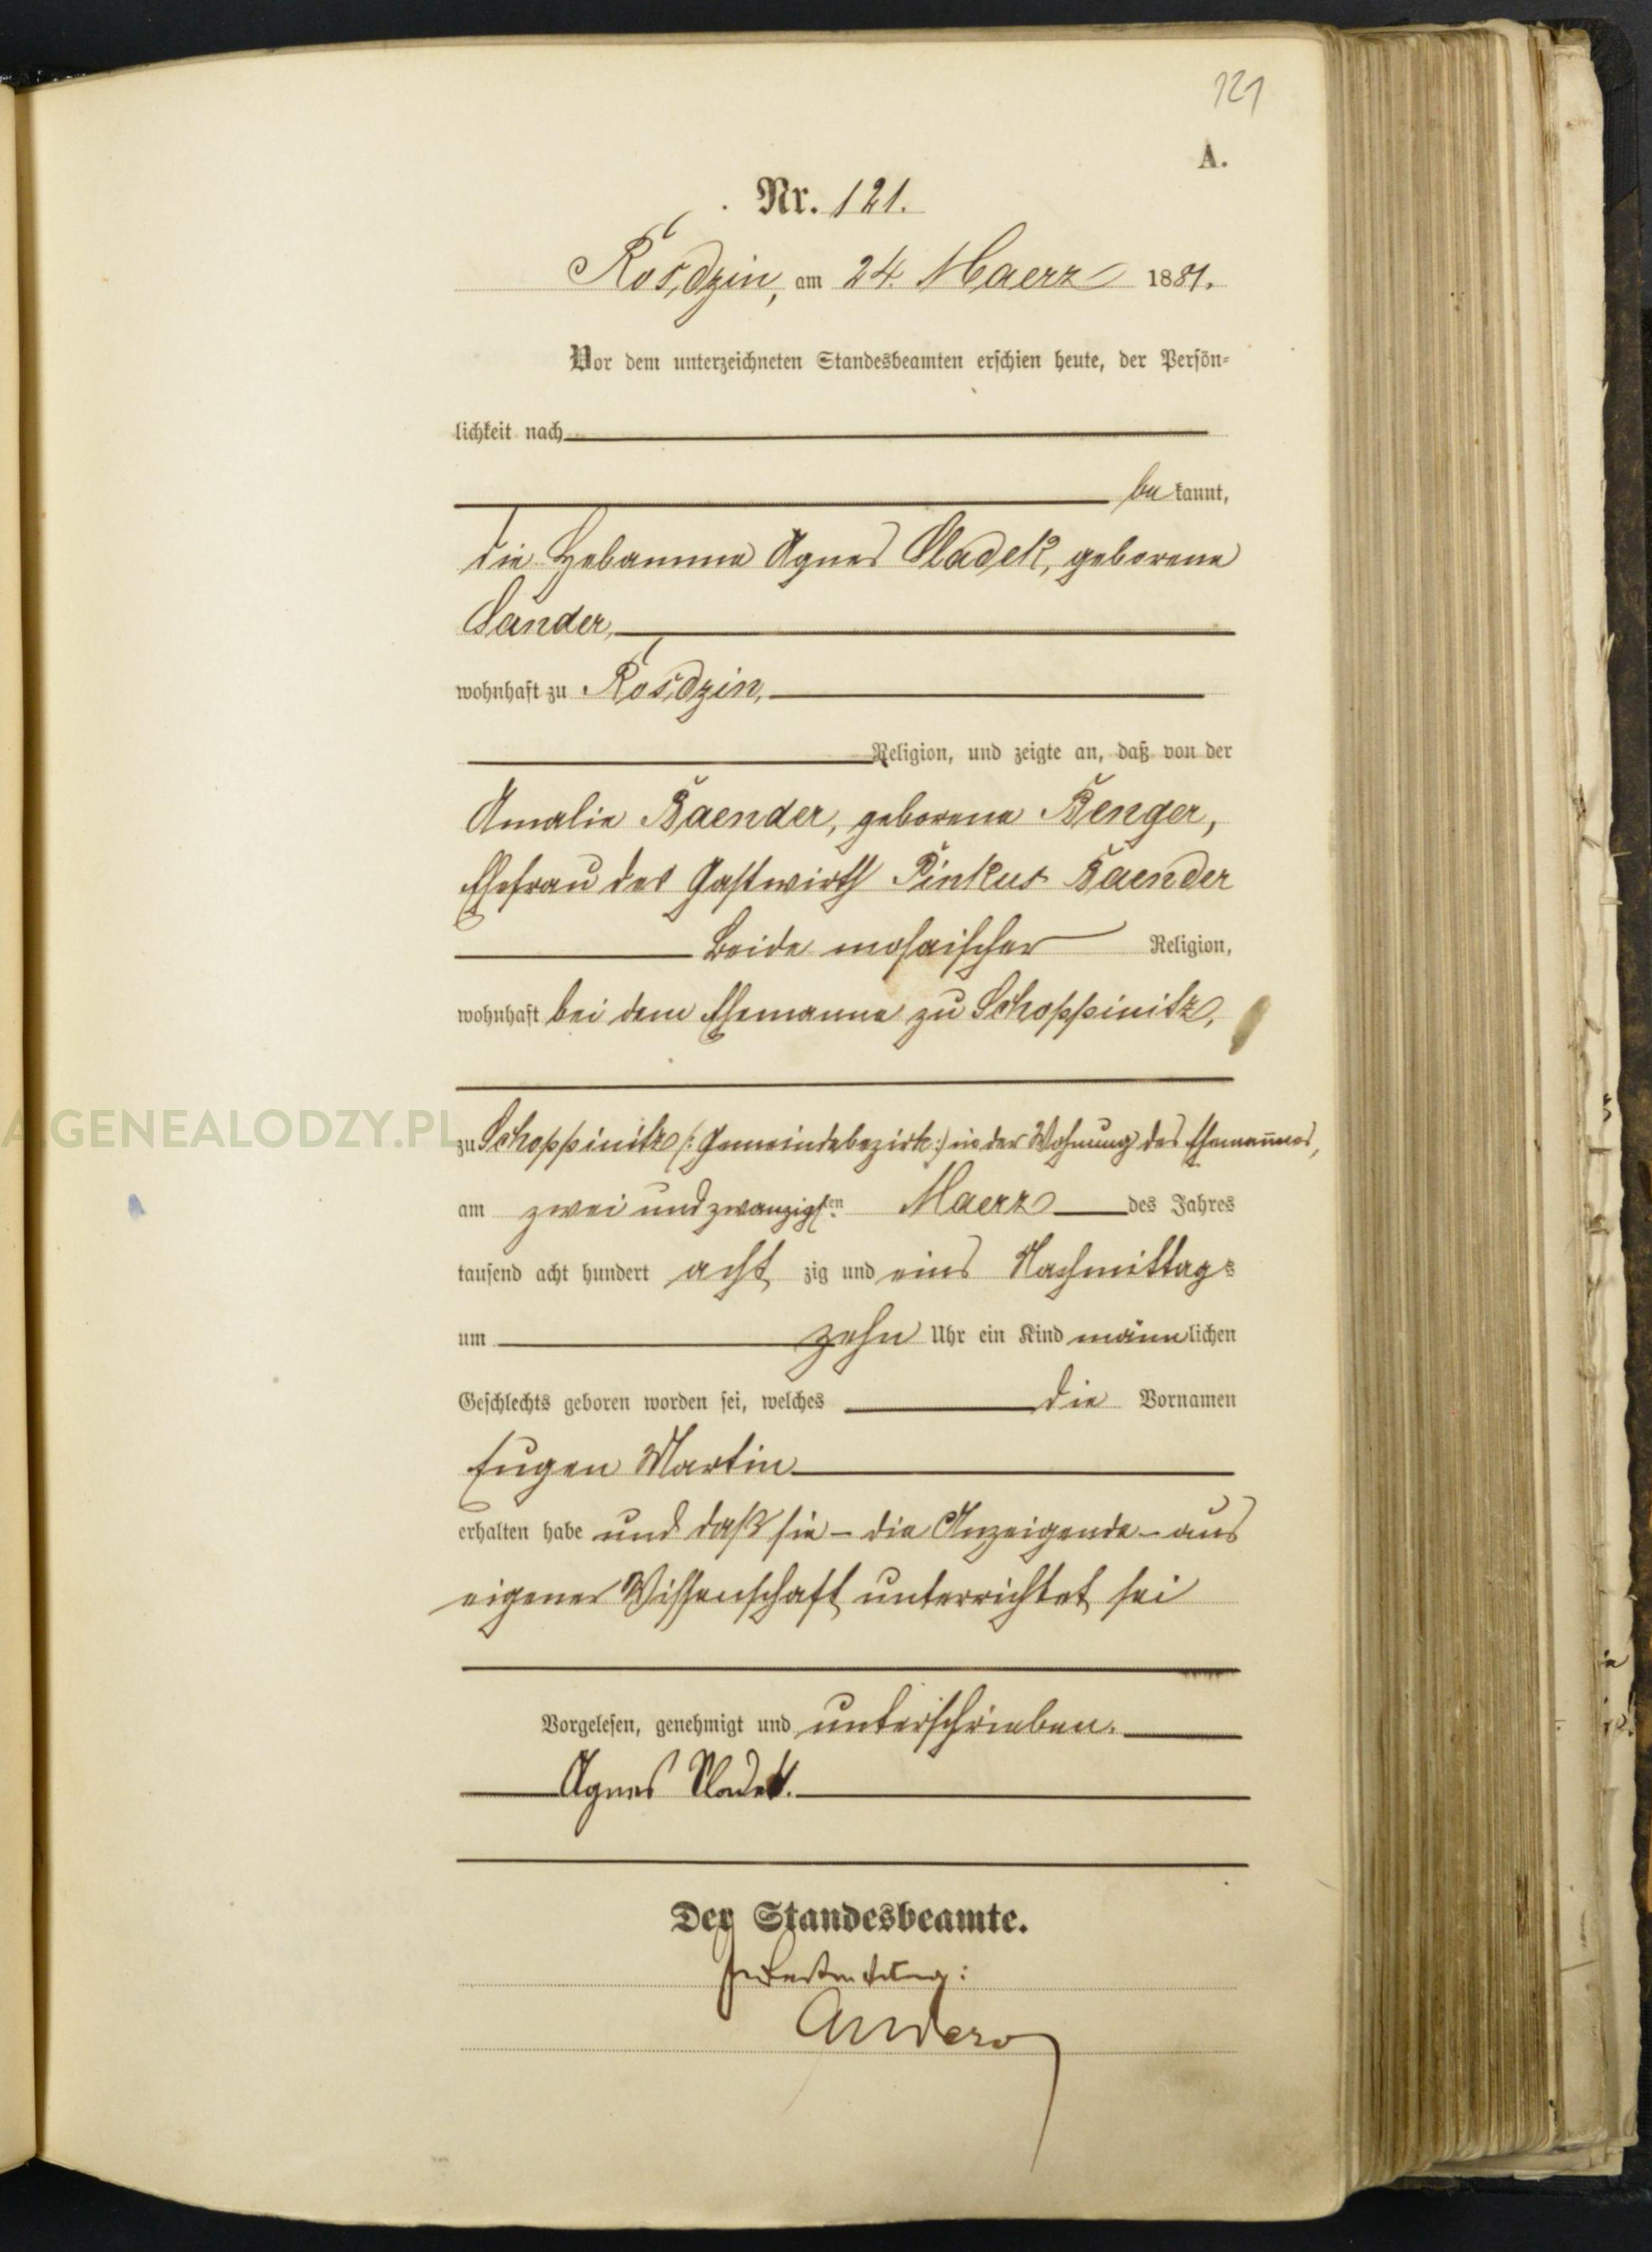 121
A.
Nr. 121.
Rosdzin, am 24. Maerz 1881.
Vor dem unterzeichneten Standesbeamten erschien heute, der Persön-
lichkeit nach
be kannt,
die Hebamme Agnes Sladek, geborene
Sander,
wohnhaft zu Rosdzin,
Religion, und zeigte an, daß von der
Amalie Baender, geborene Benger,
Ehefrau des Gastwirth Pinkus Baender
beide mosaischer Religion,
wohnhaft bei dem Ehemanne zu Schoppinitz,
AGENEALODZY.PL
zu Schoppinitz (: Gemeindebezirk :) in der Wohnung des Ehemannes,
am zwei und zwanzigsten Maerz des Jahres
tausend acht hundert acht zig und eins Nachmittags
um zehn Uhr ein Kind männlichen
Geschlechts geboren worden sei, welches die Vornamen
Eugen Martin
erhalten habe und daß sie – die Anzeigende – aus
eigener Wissenschaft unterrichtet sei
Vorgelesen, genehmigt und unterschrieben.
Agnes Sladek.
Der Standesbeamte.
In Vertretung: